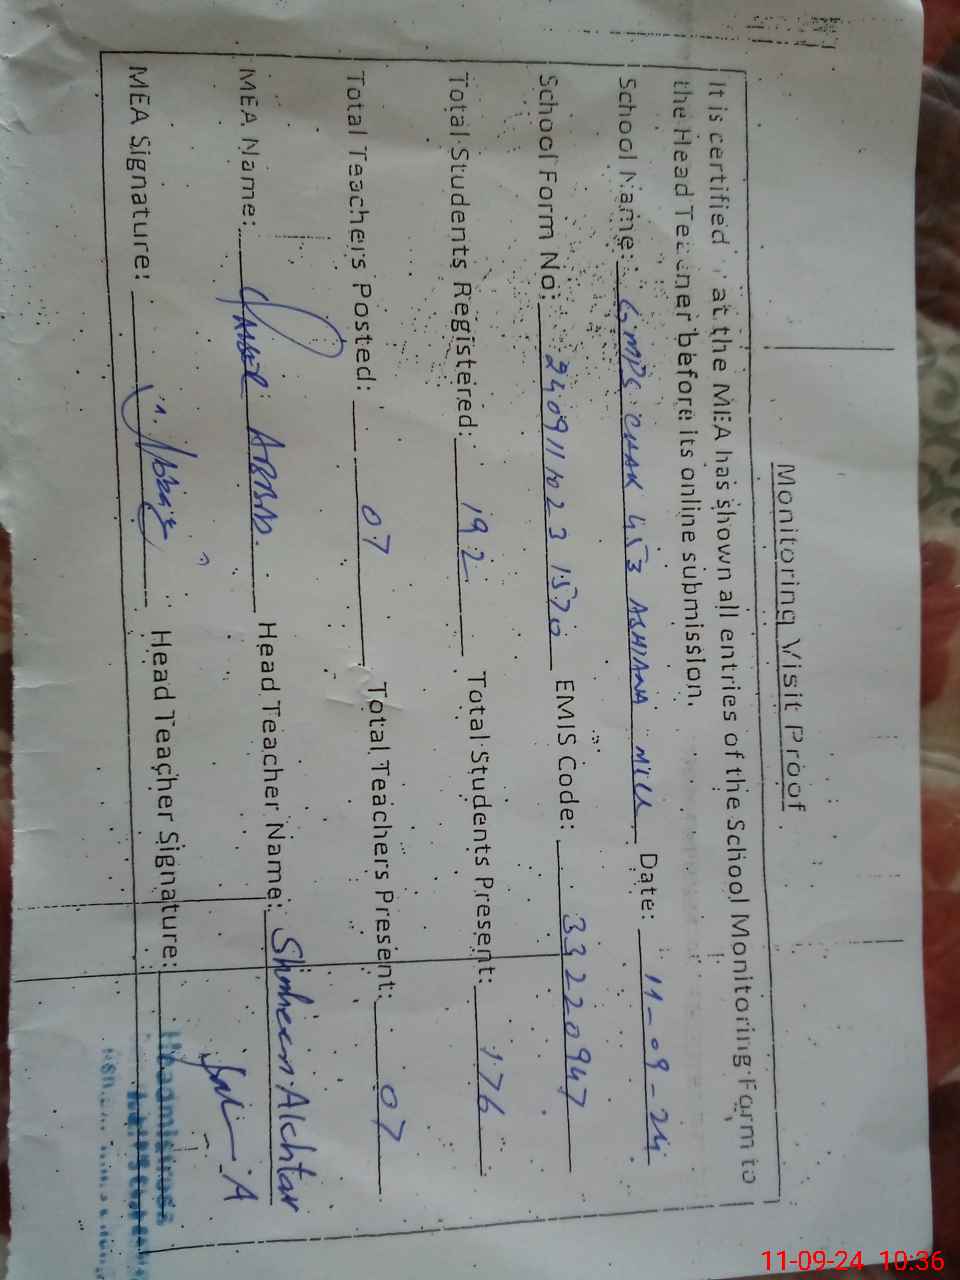 Monitoring Visit Proof
It is certified at the MEA has shown all entries of the School Monitoring Form to
the Head Teacher before its online submission.
School Name: GMPS CHAK 453 ASHIANA MILL Date: 11-09-24
School Form No: EMIS Code: 33220947
Total Students Registered: 192 Total Students Present: 176
Total Teachers Posted: 07 Total Teachers Present: 07
MEA Name: ABBAS. Head Teacher Name: Shaheen Akhtar
MEA Signature: Head Teacher Signature:
Headmistress
11-09-24 10:36